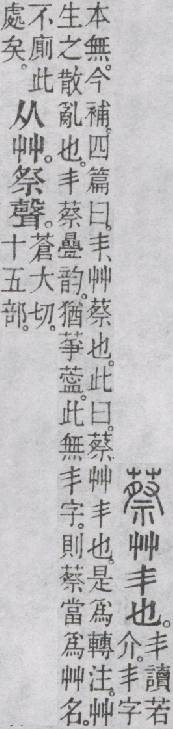 蔡艸丯也。丯讀若
介。丯字
本無。今補。四篇曰。丯、艸蔡也。此曰。蔡艸丯也。是爲轉注。艸
生之散亂也。丯蔡疊韵。猶。此無丯字。則蔡當爲艸名。
不廁此
處矣。
从艸。祭聲。蒼大切。
十五部。